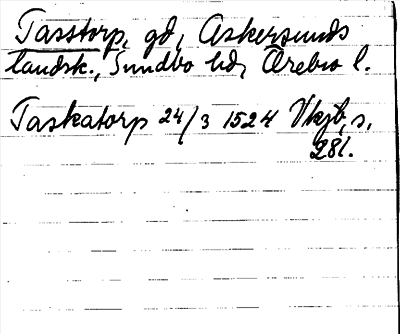 Tasstorp, gd, Askersunds
landsk., Sundbo hd, Örebro l.
Taskatorp 24/3 1524 Vkjb, s,
281.